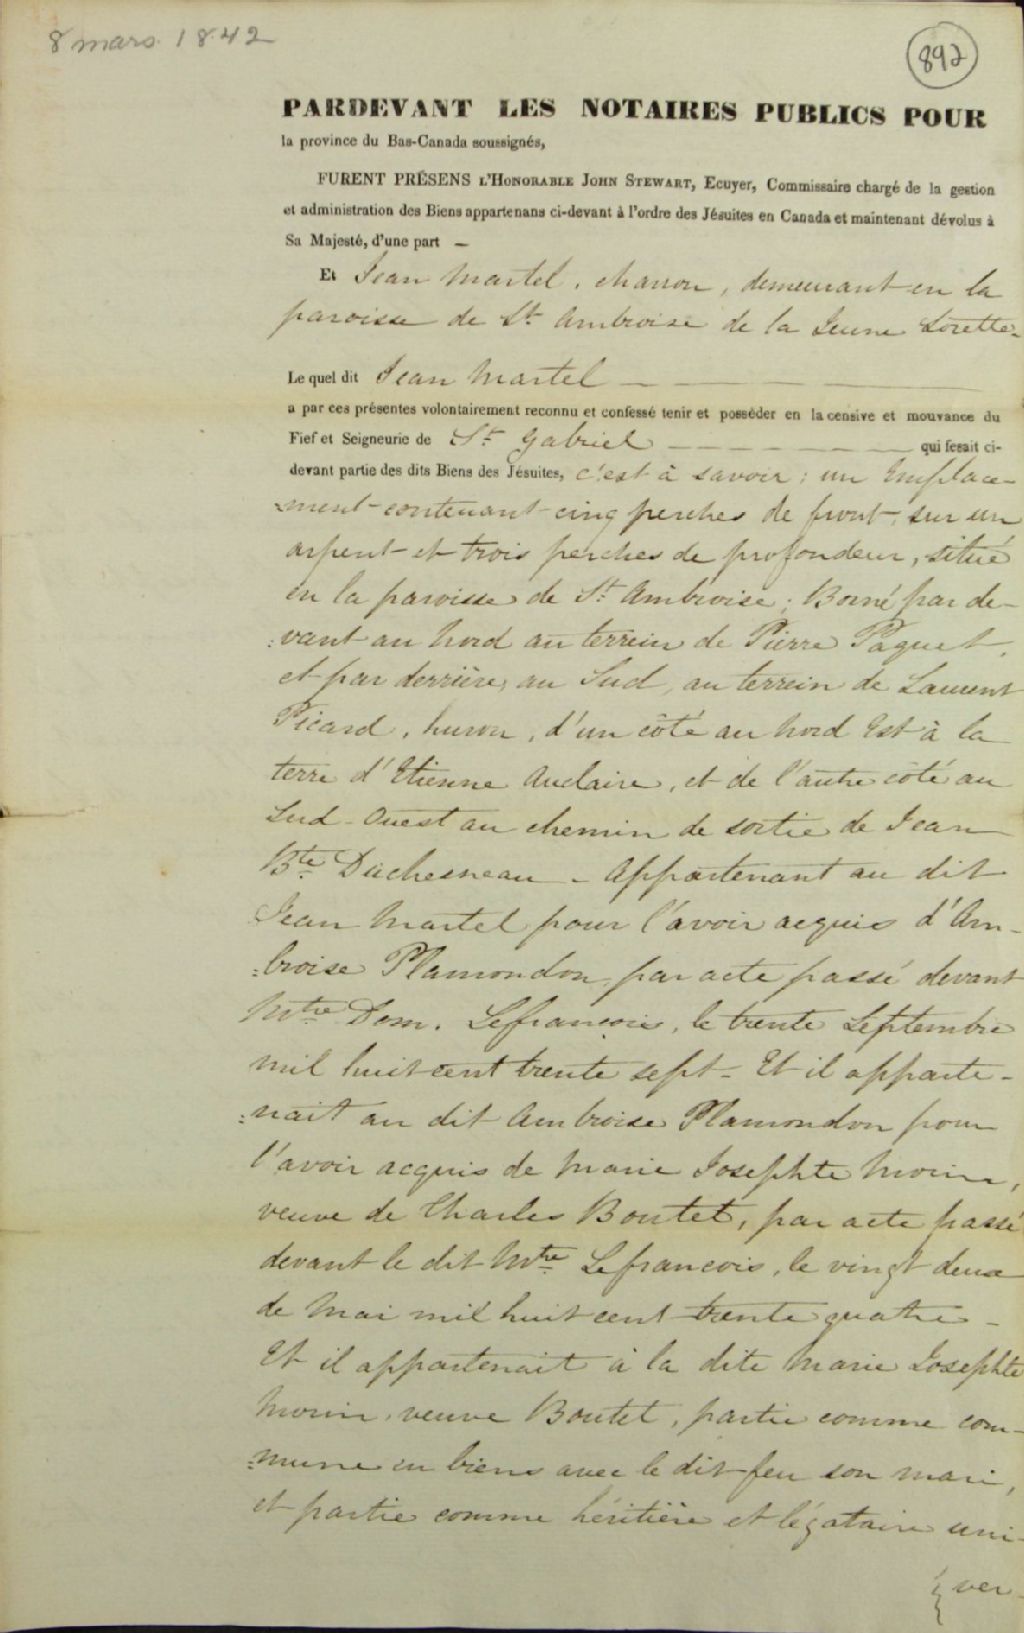 8 mars 1842
892
PARDEVANT LES NOTAIRES PUBLICS POUR
la province du Bas-Canada soussignés,
FURENT PRÉSENS L'HONORABLE JOHN STEWART, Ecuyer, Commissaire chargé de la gestion
et administration des Biens appartenans ci-devant à l'ordre des Jésuites en Canada et maintenant dévolus à
Sa Majesté, d'une part —
Et Jean Martel, charron, demeurant en la
paroisse de St. Ambroise de la Jeune Lorette.
Le quel dit Jean Martel — — — —
a par ces présentes volontairement reconnu et confessé tenir et posséder en la censive et mouvance du
Fief et Seigneurie de St. Gabriel — — — — qui fesait ci-
devant partie des dits Biens des Jésuites, c'est à savoir: un Emplace-
-ment contenant cinq perches de front, sur un
arpent et trois perches de profondeur, situé
en la paroisse de St. Ambroise; Borné par de-
:vant au Nord au terrein de Pierre Paquet,
et par derrière, au Sud, au terrein de Laurent
Picard, huron, d'un côté au Nord Est à la
terre d'Etienne Auclaire, et de l'autre côté au
Sud-Ouest au chemin de sortie de Jean
Bte. Duchesneau - Appartenant au dit
Jean Martel pour l'avoir acquis d'Am-
:broise Plamondon, par acte passé devant
Mtre Dom. Lefrancois, le trente Septembre
mil huit cent trente sept - Et il apparte-
:nait au dit Ambroise Plamondon pour
l'avoir acquis de Marie Josephte Morin,
veuve de Charles Boutet, par acte passé
devant le dit Mtre Lefrancois, le vingt deux
de Mai mil huit cent trente quatre -
Et il appartenait à la dite Marie Josephte
Morin, veuve Boutet, partie comme com-
:mune en biens avec le dit feu son mari,
et partie comme héritière et légataire uni-
ver-